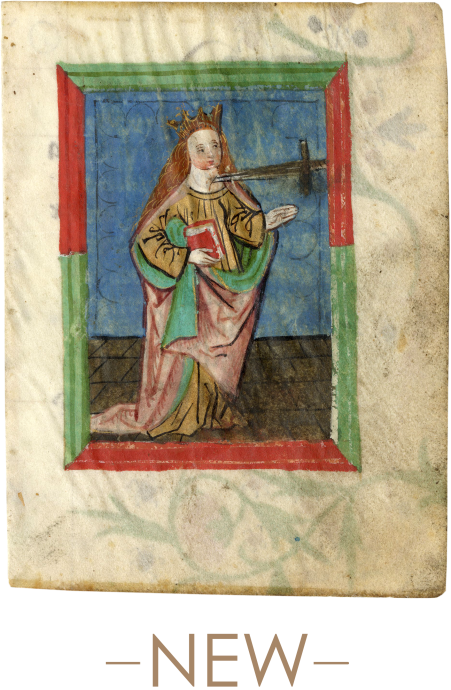 –NEW–